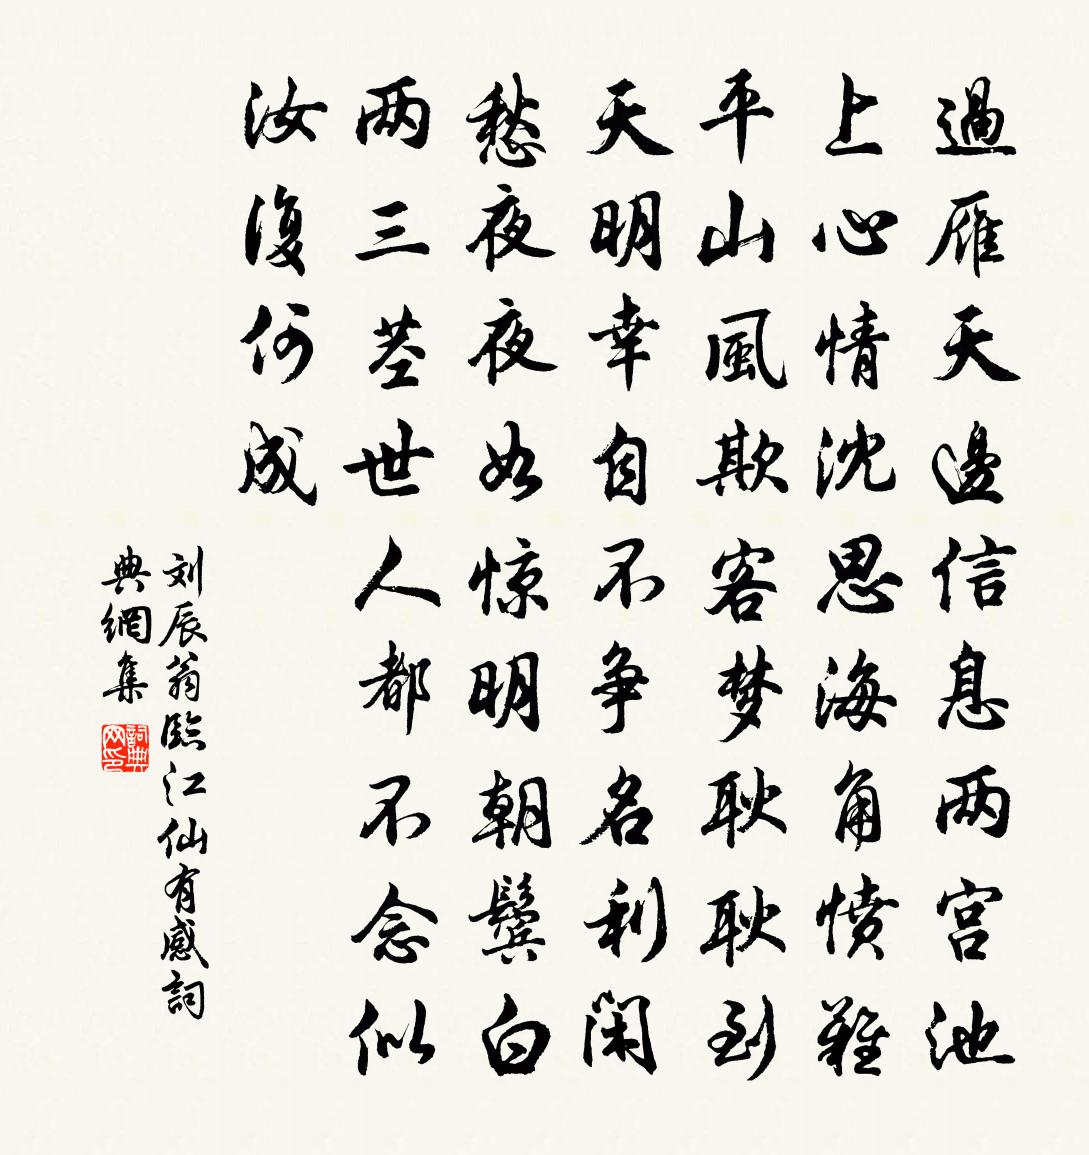 過雁天邊信息两宫池
上心情沈思海角愤難
平山風欺客梦耿耿到
天明幸自不争名利闲
愁夜夜如惊明朝鬓白
两三茎世人都不念似
汝復何成
刘辰翁臨江仙有感詞
典網集
詞典网印